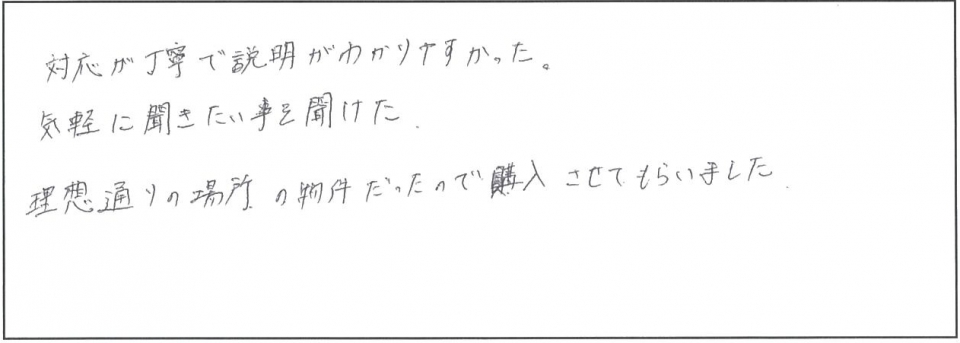 対応が丁寧で説明がわかりやすかった。
気軽に聞きたい事を聞けた.
理想通りの場所の物件だったので購入させてもらいました.